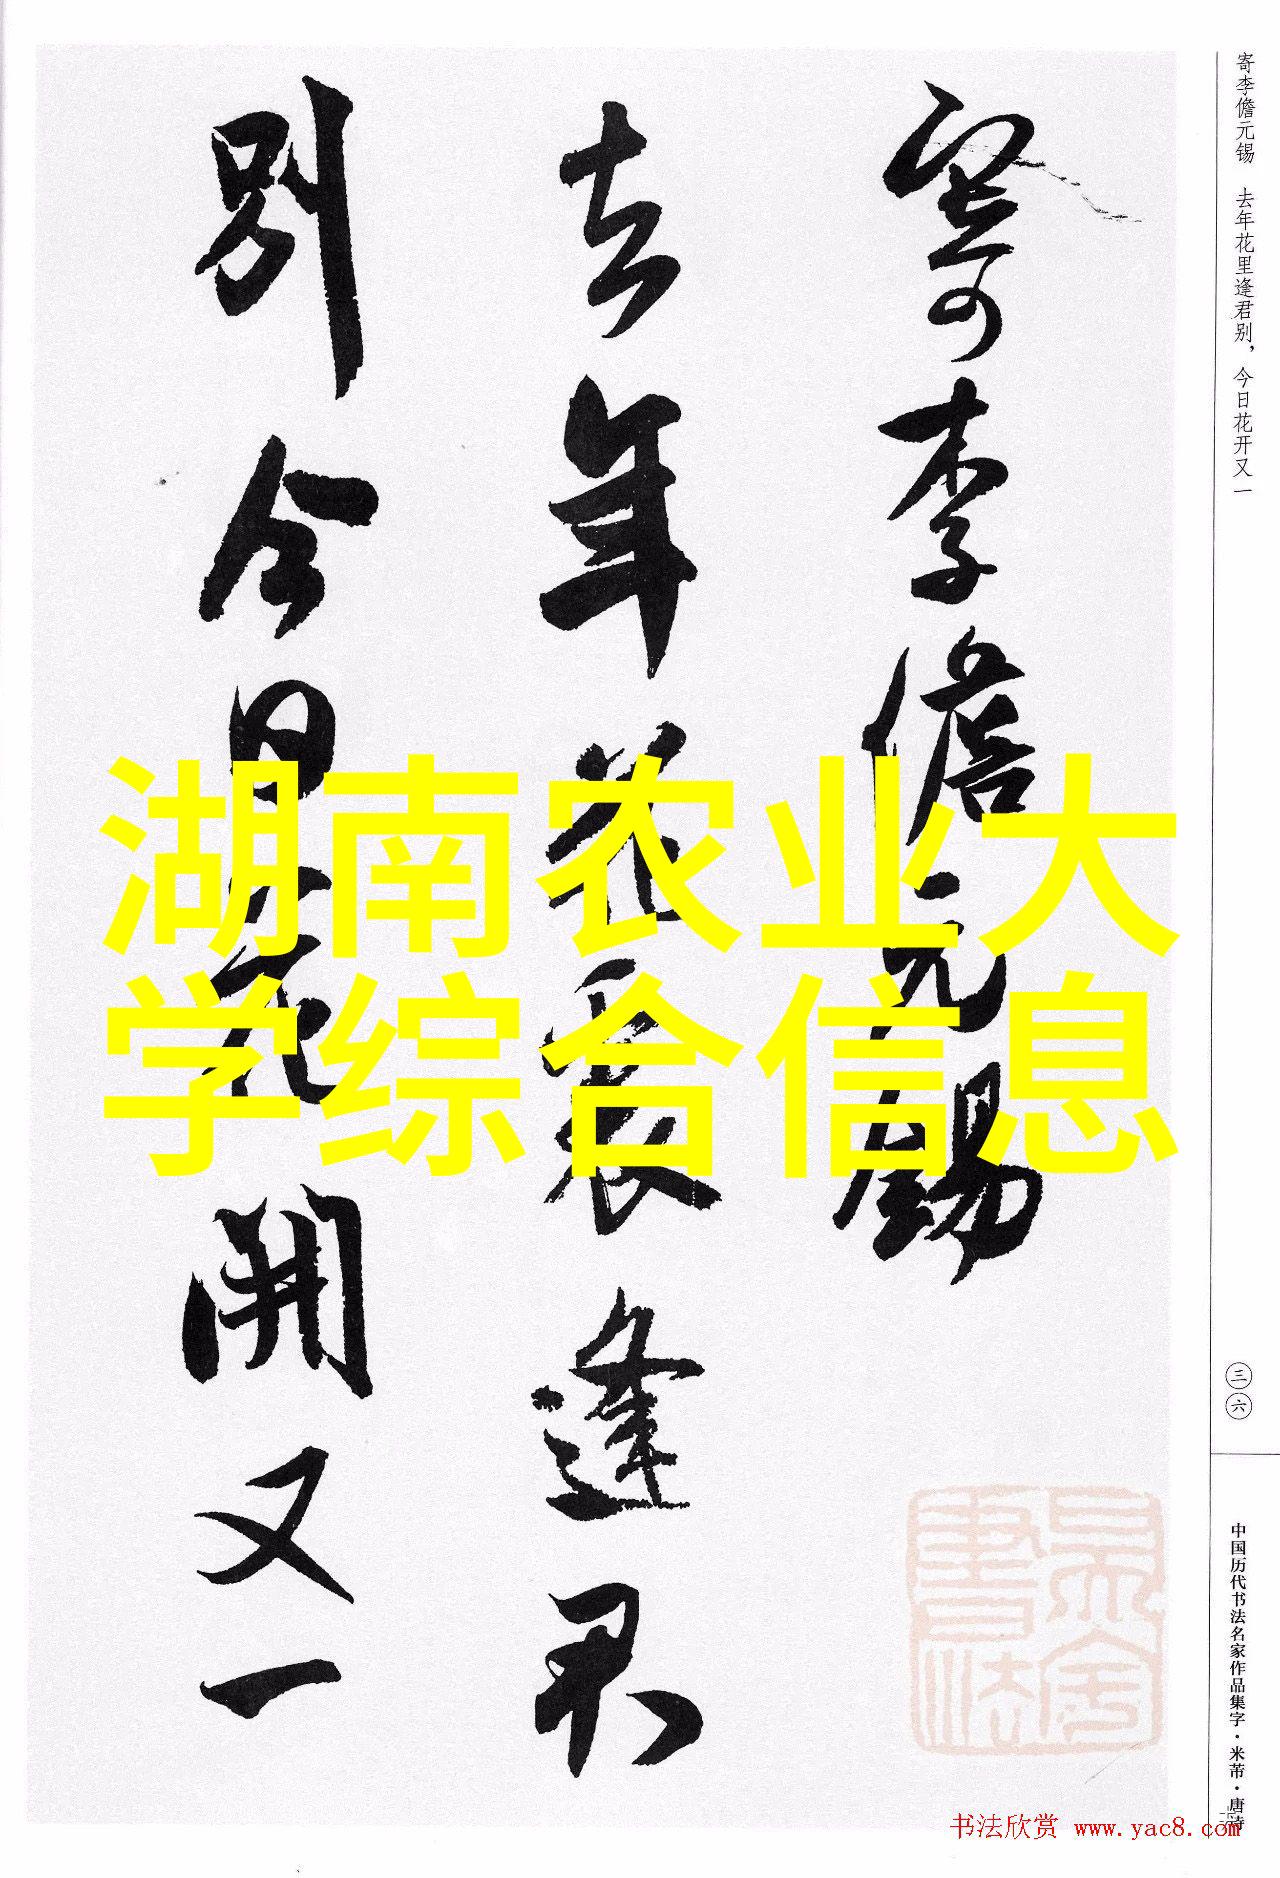 寄李儋元锡
去年花里逢君
别今日花開又一
湖南农业大
学综合信息
寄李儋元锡　去年花里逢君别，今日花开又一
三六
中国历代书法名家作品集字·米芾·唐诗
书法欣赏 www.yac8.com